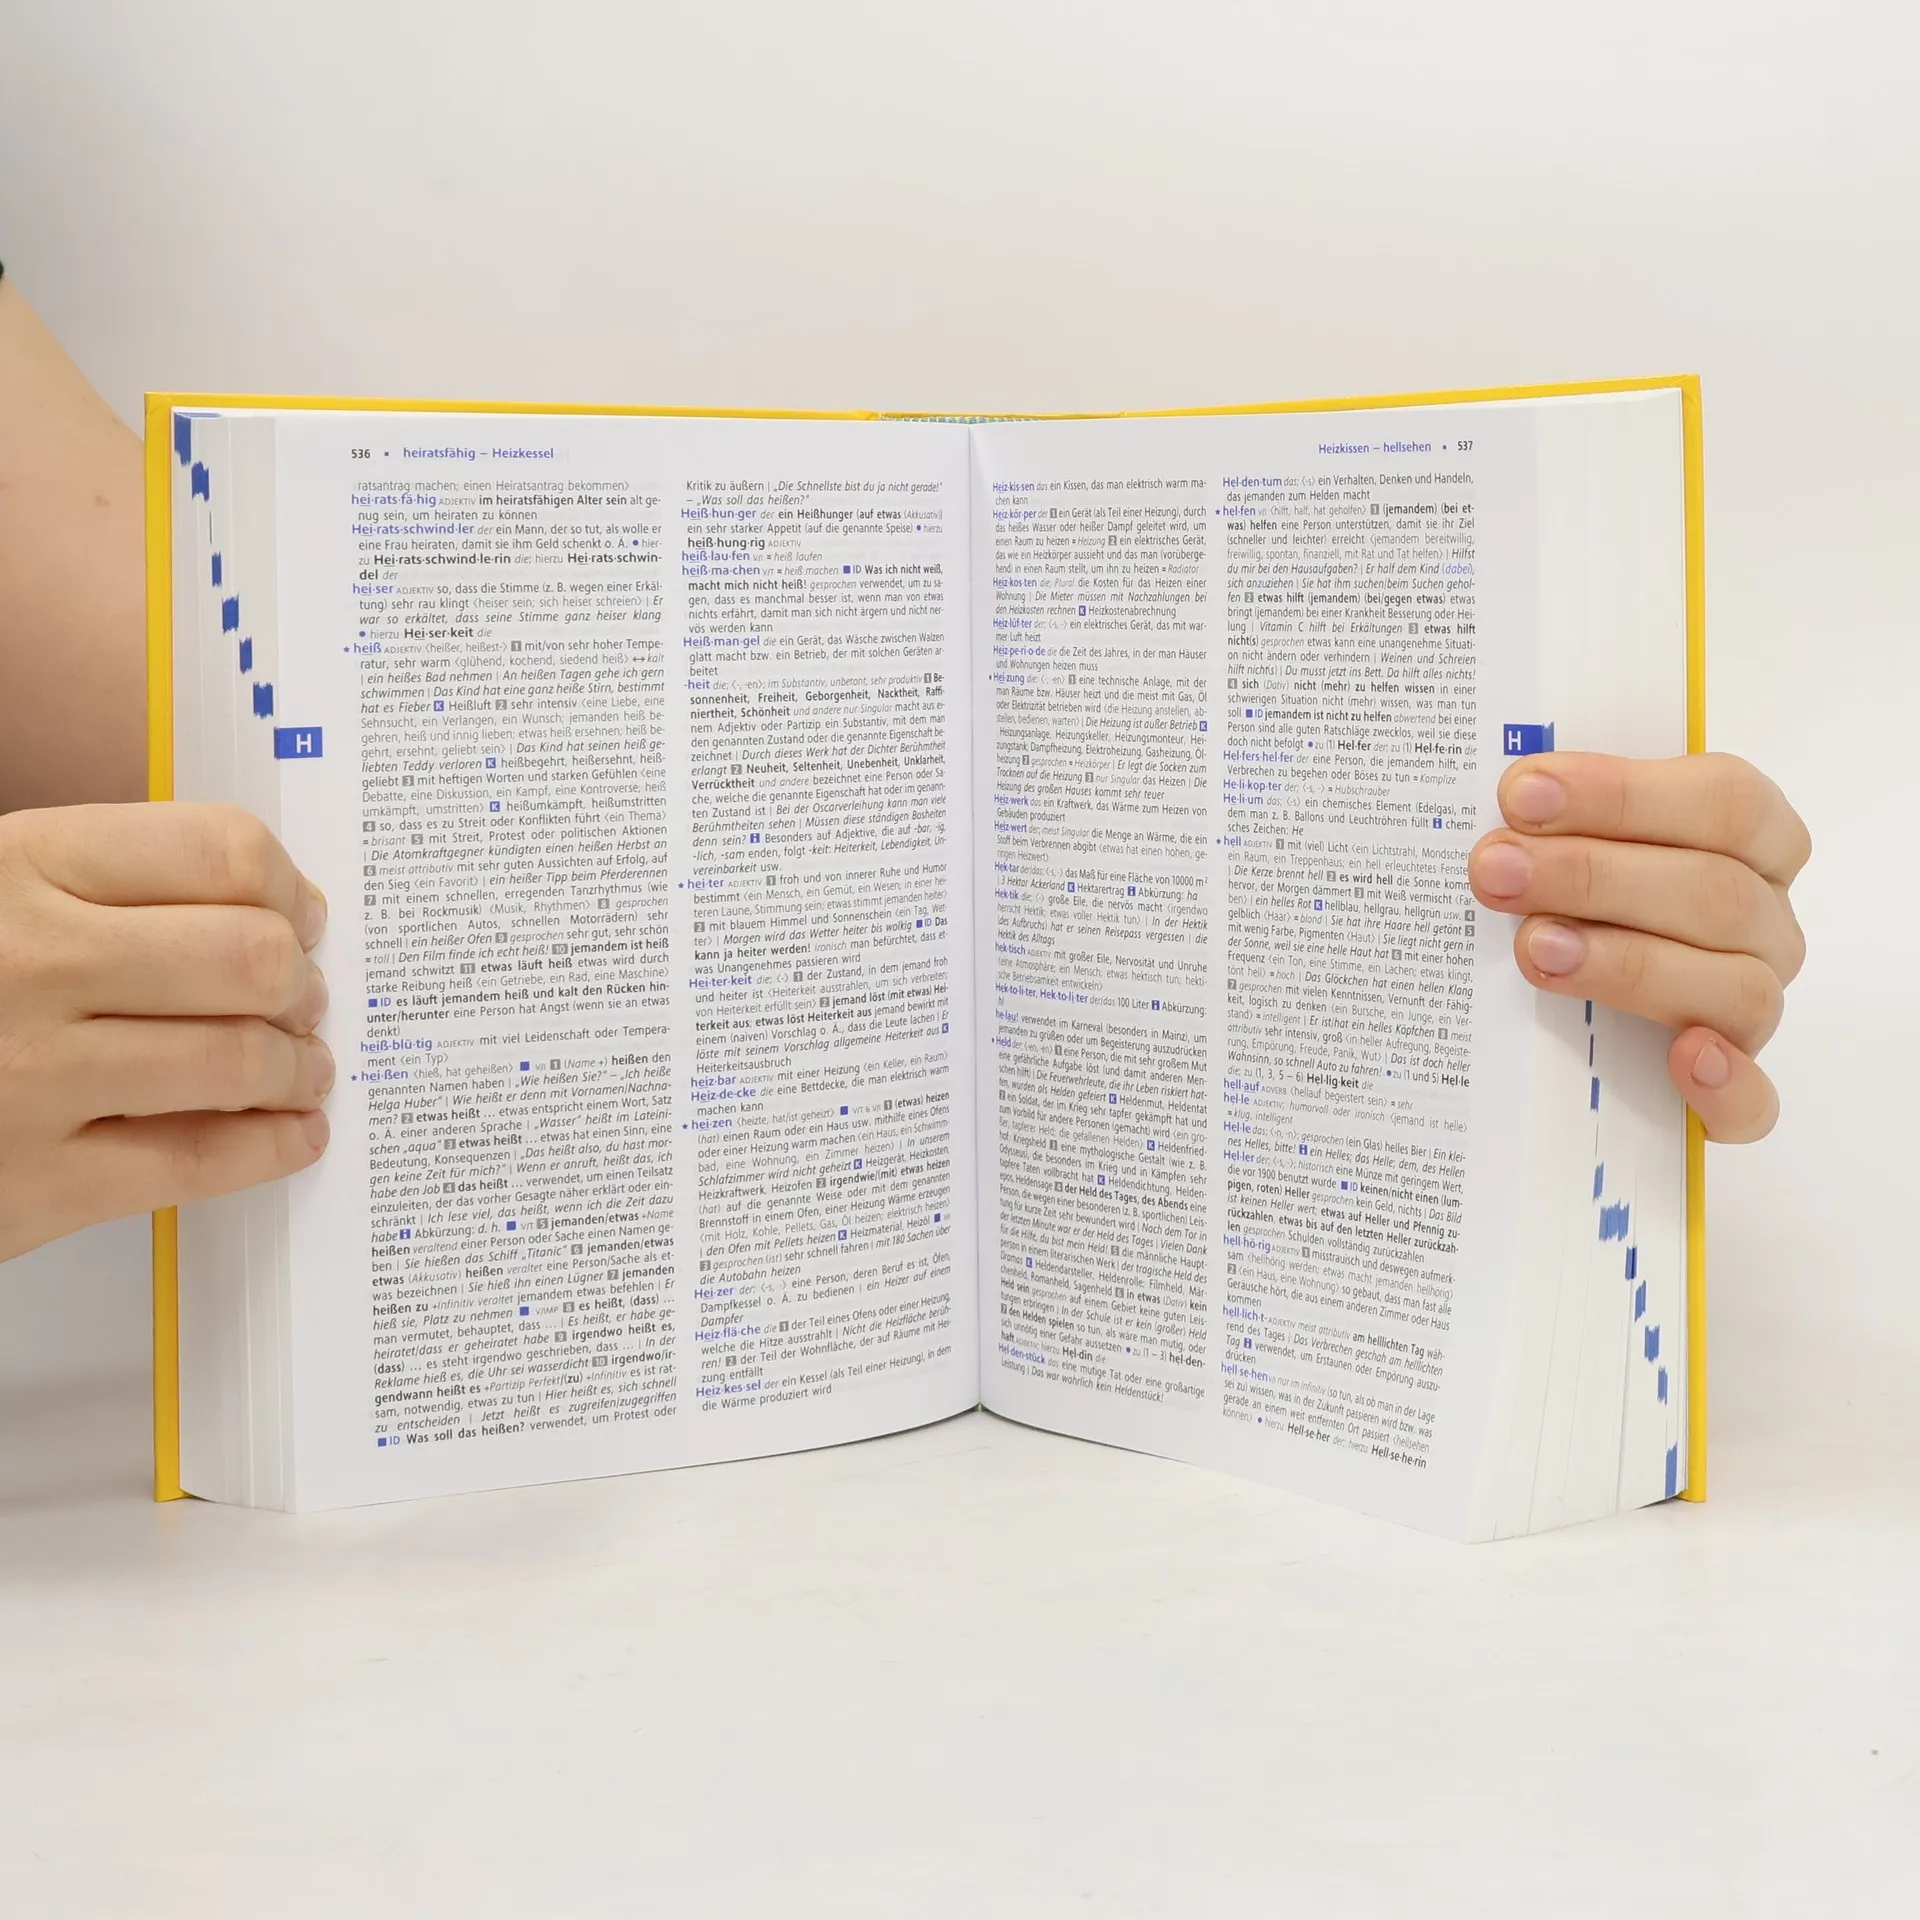 536 ▪ heiratsfähig – Heizkessel
ratsantrag machen; einen Heiratsantrag bekommen⟩
hei·rats·fä·hig ADJEKTIV im heiratsfähigen Alter sein alt ge-
nug sein, um heiraten zu können
Hei·rats·schwind·ler der ein Mann, der so tut, als wolle er
eine Frau heiraten, damit sie ihm Geld schenkt o. Ä. ● hier-
zu Hei·rats·schwind·le·rin die; hierzu Hei·rats·schwin-
del der
hei·ser ADJEKTIV so, dass die Stimme (z. B. wegen einer Erkäl-
tung) sehr rau klingt ⟨heiser sein; sich heiser schreien⟩ | Er
war so erkältet, dass seine Stimme ganz heiser klang
● hierzu Hei·ser·keit die
★ heiß ADJEKTIV ⟨heißer, heißest-⟩ 1 mit/von sehr hoher Tempe-
ratur, sehr warm ⟨glühend, kochend, siedend heiß⟩ ↔ kalt
| ein heißes Bad nehmen | An heißen Tagen gehe ich gern
schwimmen | Das Kind hat eine ganz heiße Stirn, bestimmt
hat es Fieber K Heißluft 2 sehr intensiv ⟨eine Liebe, eine
Sehnsucht, ein Verlangen, ein Wunsch; jemanden heiß be-
gehren, heiß und innig lieben; etwas heiß ersehnen; heiß be-
gehrt, ersehnt, geliebt sein⟩ | Das Kind hat seinen heiß ge-
liebten Teddy verloren K heißbegehrt, heißersehnt, heiß-
geliebt 3 mit heftigen Worten und starken Gefühlen ⟨eine
Debatte, eine Diskussion, ein Kampf, eine Kontroverse; heiß
umkämpft, umstritten⟩ K heißumkämpft, heißumstritten
4 so, dass es zu Streit oder Konflikten führt ⟨ein Thema⟩
= brisant 5 mit Streit, Protest oder politischen Aktionen
| Die Atomkraftgegner kündigten einen heißen Herbst an
6 meist attributiv mit sehr guten Aussichten auf Erfolg, auf
den Sieg ⟨ein Favorit⟩ | ein heißer Tipp beim Pferderennen
7 mit einem schnellen, erregenden Tanzrhythmus (wie
z. B. bei Rockmusik) ⟨Musik, Rhythmen⟩ 8 gesprochen
(von sportlichen Autos, schnellen Motorrädern) sehr
schnell | ein heißer Ofen 9 gesprochen sehr gut, sehr schön
≈ toll | Den Film finde ich echt heiß! 10 jemandem ist heiß
jemand schwitzt 11 etwas läuft heiß etwas wird durch
starke Reibung heiß ⟨ein Getriebe, ein Rad, eine Maschine⟩
■ ID es läuft jemandem heiß und kalt den Rücken hin-
unter/herunter eine Person hat Angst (wenn sie an etwas
denkt)
heiß·blü·tig ADJEKTIV mit viel Leidenschaft oder Tempera-
ment ⟨ein Typ⟩
★ hei·ßen ⟨hieß, hat geheißen⟩ ■ V/I 1 (Name +) heißen den
genannten Namen haben | „Wie heißen Sie?“ – „Ich heiße
Helga Huber“ | Wie heißt er denn mit Vornamen/Nachna-
men? 2 etwas heißt … etwas entspricht einem Wort, Satz
o. Ä. einer anderen Sprache | „Wasser“ heißt im Lateini-
schen „aqua“ 3 etwas heißt … etwas hat einen Sinn, eine
Bedeutung, Konsequenzen | „Das heißt also, du hast mor-
gen keine Zeit für mich?“ | Wenn er anruft, heißt das, ich
habe den Job 4 das heißt … verwendet, um einen Teilsatz
einzuleiten, der das vorher Gesagte näher erklärt oder ein-
schränkt | Ich lese viel, das heißt, wenn ich die Zeit dazu
habe i Abkürzung: d. h. ■ V/T 5 jemanden/etwas +Name
heißen veraltend einer Person oder Sache einen Namen ge-
ben | Sie hießen das Schiff „Titanic“ 6 jemanden/etwas
etwas (Akkusativ) heißen veraltet eine Person/Sache als et-
was bezeichnen | Sie hieß ihn einen Lügner 7 jemanden
heißen zu +Infinitiv veraltet jemandem etwas befehlen | Er
hieß sie, Platz zu nehmen ■ V/IMP 8 es heißt, (dass) …
man vermutet, behauptet, dass … | Es heißt, er habe ge-
heiratet/dass er geheiratet habe 9 irgendwo heißt es,
(dass) … es steht irgendwo geschrieben, dass … | In der
Reklame hieß es, die Uhr sei wasserdicht 10 irgendwo/ir-
gendwann heißt es +Partizip Perfekt/(zu) +Infinitiv es ist rat-
sam, notwendig, etwas zu tun | Hier heißt es, sich schnell
zu entscheiden | Jetzt heißt es zugreifen/zugegriffen
■ ID Was soll das heißen? verwendet, um Protest oder
Kritik zu äußern | „Die Schnellste bist du ja nicht gerade!“
– „Was soll das heißen?“
Heiß·hun·ger der ein Heißhunger (auf etwas (Akkusativ))
ein sehr starker Appetit (auf die genannte Speise) ● hierzu
heiß·hung·rig ADJEKTIV
heiß·lau·fen V/I = heiß laufen
heiß·ma·chen V/T = heiß machen ■ ID Was ich nicht weiß,
macht mich nicht heiß! gesprochen verwendet, um zu sa-
gen, dass es manchmal besser ist, wenn man von etwas
nichts erfährt, damit man sich nicht ärgern und nicht ner-
vös werden kann
Heiß·man·gel die ein Gerät, das Wäsche zwischen Walzen
glatt macht bzw. ein Betrieb, der mit solchen Geräten ar-
beitet
-heit die; ⟨-, -en⟩; im Substantiv, unbetont, sehr produktiv 1 Be-
sonnenheit, Freiheit, Geborgenheit, Nacktheit, Raffi-
niertheit, Schönheit und andere nur Singular macht aus ei-
nem Adjektiv oder Partizip ein Substantiv, mit dem man
den genannten Zustand oder die genannte Eigenschaft be-
zeichnet | Durch dieses Werk hat der Dichter Berühmtheit
erlangt 2 Neuheit, Seltenheit, Unebenheit, Unklarheit,
Verrücktheit und andere bezeichnet eine Person oder Sa-
che, welche die genannte Eigenschaft hat oder im genann-
ten Zustand ist | Bei der Oscarverleihung kann man viele
Berühmtheiten sehen | Müssen diese ständigen Bosheiten
denn sein? i Besonders auf Adjektive, die auf -bar, -ig,
-lich, -sam enden, folgt -keit: Heiterkeit, Lebendigkeit, Un-
vereinbarkeit usw.
★ hei·ter ADJEKTIV 1 froh und von innerer Ruhe und Humor
bestimmt ⟨ein Mensch, ein Gemüt, ein Wesen; in einer hei-
teren Laune, Stimmung sein; etwas stimmt jemanden heiter⟩
2 mit blauem Himmel und Sonnenschein ⟨ein Tag, Wet-
ter⟩ | Morgen wird das Wetter heiter bis wolkig ■ ID Das
kann ja heiter werden! ironisch man befürchtet, dass et-
was Unangenehmes passieren wird
Hei·ter·keit die; ⟨-⟩ 1 der Zustand, in dem jemand froh
und heiter ist ⟨Heiterkeit ausstrahlen, um sich verbreiten;
von Heiterkeit erfüllt sein⟩ 2 jemand löst (mit etwas) Hei-
terkeit aus; etwas löst Heiterkeit aus jemand bewirkt mit
einem (naiven) Vorschlag o. Ä., dass die Leute lachen | Er
löste mit seinem Vorschlag allgemeine Heiterkeit aus K
Heiterkeitsausbruch
heiz·bar ADJEKTIV mit einer Heizung ⟨ein Keller, ein Raum⟩
Heiz·de·cke die eine Bettdecke, die man elektrisch warm
machen kann
★ hei·zen ⟨heizte, hat/ist geheizt⟩ ■ V/T & V/I 1 (etwas) heizen
(hat) einen Raum oder ein Haus usw. mithilfe eines Ofens
oder einer Heizung warm machen ⟨ein Haus, ein Schwimm-
bad, eine Wohnung, ein Zimmer heizen⟩ | In unserem
Schlafzimmer wird nicht geheizt K Heizgerät, Heizkosten,
Heizkraftwerk, Heizofen 2 irgendwie/(mit) etwas heizen
(hat) auf die genannte Weise oder mit dem genannten
Brennstoff in einem Ofen, einer Heizung Wärme erzeugen
⟨mit Holz, Kohle, Pellets, Gas, Öl heizen; elektrisch heizen⟩
| den Ofen mit Pellets heizen K Heizmaterial, Heizöl ■ V/I
3 gesprochen (ist) sehr schnell fahren | mit 180 Sachen über
die Autobahn heizen
Hei·zer der; ⟨-s, -⟩ eine Person, deren Beruf es ist, Öfen,
Dampfkessel o. Ä. zu bedienen | ein Heizer auf einem
Dampfer
Heiz·flä·che die 1 der Teil eines Ofens oder einer Heizung,
welche die Hitze ausstrahlt | Nicht die Heizfläche berüh-
ren! 2 der Teil der Wohnfläche, der auf Räume mit Hei-
zung entfällt
Heiz·kes·sel der ein Kessel (als Teil einer Heizung), in dem
die Wärme produziert wird
H
Heizkissen – hellsehen ▪ 537
Heiz·kis·sen das ein Kissen, das man elektrisch warm ma-
chen kann
Heiz·kör·per der 1 ein Gerät (als Teil einer Heizung), durch
das heißes Wasser oder heißer Dampf geleitet wird, um
einen Raum zu heizen = Heizung 2 ein elektrisches Gerät,
das wie ein Heizkörper aussieht und das man (vorüberge-
hend) in einen Raum stellt, um ihn zu heizen = Radiator
Heiz·kos·ten die; Plural die Kosten für das Heizen einer
Wohnung | Die Mieter müssen mit Nachzahlungen bei
den Heizkosten rechnen K Heizkostenabrechnung
Heiz·lüf·ter der; ⟨-s, -⟩ ein elektrisches Gerät, das mit war-
mer Luft heizt
Heiz·pe·ri·o·de die die Zeit des Jahres, in der man Häuser
und Wohnungen heizen muss
★ Hei·zung die; ⟨-, -en⟩ 1 eine technische Anlage, mit der
man Räume bzw. Häuser heizt und die meist mit Gas, Öl
oder Elektrizität betrieben wird ⟨die Heizung anstellen, ab-
stellen, bedienen, warten⟩ | Die Heizung ist außer Betrieb K
Heizungsanlage, Heizungskeller, Heizungsmonteur, Hei-
zungstank; Dampfheizung, Elektroheizung, Gasheizung, Öl-
heizung 2 gesprochen = Heizkörper | Er legt die Socken zum
Trocknen auf die Heizung 3 nur Singular das Heizen | Die
Heizung des großen Hauses kommt sehr teuer
Heiz·werk das ein Kraftwerk, das Wärme zum Heizen von
Gebäuden produziert
Heiz·wert der; meist Singular die Menge an Wärme, die ein
Stoff beim Verbrennen abgibt ⟨etwas hat einen hohen, ge-
ringen Heizwert⟩
Hek·tar der/das; ⟨-s, -⟩ das Maß für eine Fläche von 10000 m²
| 3 Hektar Ackerland K Hektarertrag i Abkürzung: ha
Hek·tik die; ⟨-⟩ große Eile, die nervös macht ⟨irgendwo
herrscht Hektik; etwas voller Hektik tun⟩ | In der Hektik
(des Aufbruchs) hat er seinen Reisepass vergessen | die
Hektik des Alltags
hek·tisch ADJEKTIV mit großer Eile, Nervosität und Unruhe
⟨eine Atmosphäre; ein Mensch; etwas hektisch tun; hekti-
sche Betriebsamkeit entwickeln⟩
Hek·to·li·ter, Hek·to·li·ter der/das 100 Liter i Abkürzung:
hl
he·lau! verwendet im Karneval (besonders in Mainz), um
jemanden zu grüßen oder um Begeisterung auszudrücken
★ Held der; ⟨-en, -en⟩ 1 eine Person, die mit sehr großem Mut
eine gefährliche Aufgabe löst (und damit anderen Men-
schen hilft) | Die Feuerwehrleute, die ihr Leben riskiert hat-
ten, wurden als Helden gefeiert K Heldenmut, Heldentat
2 ein Soldat, der im Krieg sehr tapfer gekämpft hat und
zum Vorbild für andere Personen (gemacht) wird ⟨ein gro-
ßer, tapferer Held; die gefallenen Helden⟩ K Heldenfried-
hof; Kriegsheld 3 eine mythologische Gestalt (wie z. B.
Odysseus), die besonders im Krieg und in Kämpfen sehr
tapfere Taten vollbracht hat K Heldendichtung, Helden-
epos, Heldensage 4 der Held des Tages, des Abends eine
Person, die wegen einer besonderen (z. B. sportlichen) Leis-
tung für kurze Zeit sehr bewundert wird | Nach dem Tor in
der letzten Minute war er der Held des Tages | Vielen Dank
für die Hilfe, du bist mein Held! 5 die männliche Haupt-
person in einem literarischen Werk | der tragische Held des
Dramas K Heldendarsteller, Heldenrolle; Filmheld, Mär-
chenheld, Romanheld, Sagenheld 6 in etwas (Dativ) kein
Held sein gesprochen auf einem Gebiet keine guten Leis-
tungen erbringen | In der Schule ist er kein (großer) Held
7 den Helden spielen so tun, als wäre man mutig, oder
sich unnötig einer Gefahr aussetzen ● zu (1 – 3) hel·den-
haft ADJEKTIV; hierzu Hel·din die
Hel·den·stück das eine mutige Tat oder eine großartige
Leistung | Das war wahrlich kein Heldenstück!
Hel·den·tum das; ⟨-s⟩ ein Verhalten, Denken und Handeln,
das jemanden zum Helden macht
★ hel·fen V/I ⟨hilft, half, hat geholfen⟩ 1 (jemandem) (bei et-
was) helfen eine Person unterstützen, damit sie ihr Ziel
(schneller und leichter) erreicht ⟨jemandem bereitwillig,
freiwillig, spontan, finanziell, mit Rat und Tat helfen⟩ | Hilfst
du mir bei den Hausaufgaben? | Er half dem Kind (dabei),
sich anzuziehen | Sie hat ihm suchen/beim Suchen gehol-
fen 2 etwas hilft (jemandem) (bei/gegen etwas) etwas
bringt (jemandem) bei einer Krankheit Besserung oder Hei-
lung | Vitamin C hilft bei Erkältungen 3 etwas hilft
nicht(s) gesprochen etwas kann eine unangenehme Situati-
on nicht ändern oder verhindern | Weinen und Schreien
hilft nicht(s) | Du musst jetzt ins Bett. Da hilft alles nichts!
4 sich (Dativ) nicht (mehr) zu helfen wissen in einer
schwierigen Situation nicht (mehr) wissen, was man tun
soll ■ ID jemandem ist nicht zu helfen abwertend bei einer
Person sind alle guten Ratschläge zwecklos, weil sie diese
doch nicht befolgt ● zu (1) Hel·fer der; zu (1) Hel·fe·rin die
Hel·fers·hel·fer der eine Person, die jemandem hilft, ein
Verbrechen zu begehen oder Böses zu tun ≈ Komplize
He·li·kop·ter der; ⟨-s, -⟩ = Hubschrauber
He·li·um das; ⟨-s⟩ ein chemisches Element (Edelgas), mit
dem man z. B. Ballons und Leuchtröhren füllt i chemi-
sches Zeichen: He
★ hell ADJEKTIV 1 mit (viel) Licht ⟨ein Lichtstrahl, Mondschein
ein Raum, ein Treppenhaus; ein hell erleuchtetes Fenster
| Die Kerze brennt hell 2 es wird hell die Sonne komm
hervor, der Morgen dämmert 3 mit Weiß vermischt ⟨Far-
ben⟩ | ein helles Rot K hellblau, hellgrau, hellgrün usw. 4
gelblich ⟨Haar⟩ = blond | Sie hat ihre Haare hell getönt 5
mit wenig Farbe, Pigmenten ⟨Haut⟩ | Sie liegt nicht gern in
der Sonne, weil sie eine helle Haut hat 6 mit einer hohen
Frequenz ⟨ein Ton, eine Stimme, ein Lachen; etwas klingt,
tönt hell⟩ = hoch | Das Glöckchen hat einen hellen Klang
7 gesprochen mit vielen Kenntnissen, Vernunft der Fähig-
keit, logisch zu denken ⟨ein Bursche, ein Junge, ein Ver-
stand⟩ = intelligent | Er ist/hat ein helles Köpfchen 8 meist
attributiv sehr intensiv, groß ⟨in heller Aufregung, Begeiste-
rung, Empörung, Freude, Panik, Wut⟩ | Das ist doch heller
Wahnsinn, so schnell Auto zu fahren! ● zu (1 und 5) Hel·le
die; zu (1, 3, 5 – 6) Hel·lig·keit die
hell·auf ADVERB ⟨hellauf begeistert sein⟩ = sehr
hel·le ADJEKTIV; humorvoll oder ironisch ⟨jemand ist helle⟩
= klug, intelligent
Hel·le das; ⟨-n, -n⟩; gesprochen (ein Glas) helles Bier | Ein klei-
nes Helles, bitte! i ein Helles; das Helle; dem, des Hellen
Hel·ler der; ⟨-s, -⟩; historisch eine Münze mit geringem Wert,
die vor 1900 benutzt wurde ■ ID keinen/nicht einen (lum-
pigen, roten) Heller gesprochen kein Geld, nichts | Das Bild
ist keinen Heller wert; etwas auf Heller und Pfennig zu-
rückzahlen, etwas bis auf den letzten Heller zurückzah-
len gesprochen Schulden vollständig zurückzahlen
hell·hö·rig ADJEKTIV 1 misstrauisch und deswegen aufmerk-
sam ⟨hellhörig werden; etwas macht jemanden hellhörig⟩
2 ⟨ein Haus, eine Wohnung⟩ so gebaut, dass man fast alle
Geräusche hört, die aus einem anderen Zimmer oder Haus
kommen
hell·licht-  ADJEKTIV meist attributiv am helllichten Tag wäh-
rend des Tages | Das Verbrechen geschah am helllichten
Tag i verwendet, um Erstaunen oder Empörung auszu-
drücken
hell·se·hen V/I nur im Infinitiv (so tun, als ob man in der Lage
sei zu) wissen, was in der Zukunft passieren wird bzw. was
gerade an einem weit entfernten Ort passiert ⟨hellsehen
können⟩ ● hierzu Hell·se·her der; hierzu Hell·se·he·rin
H